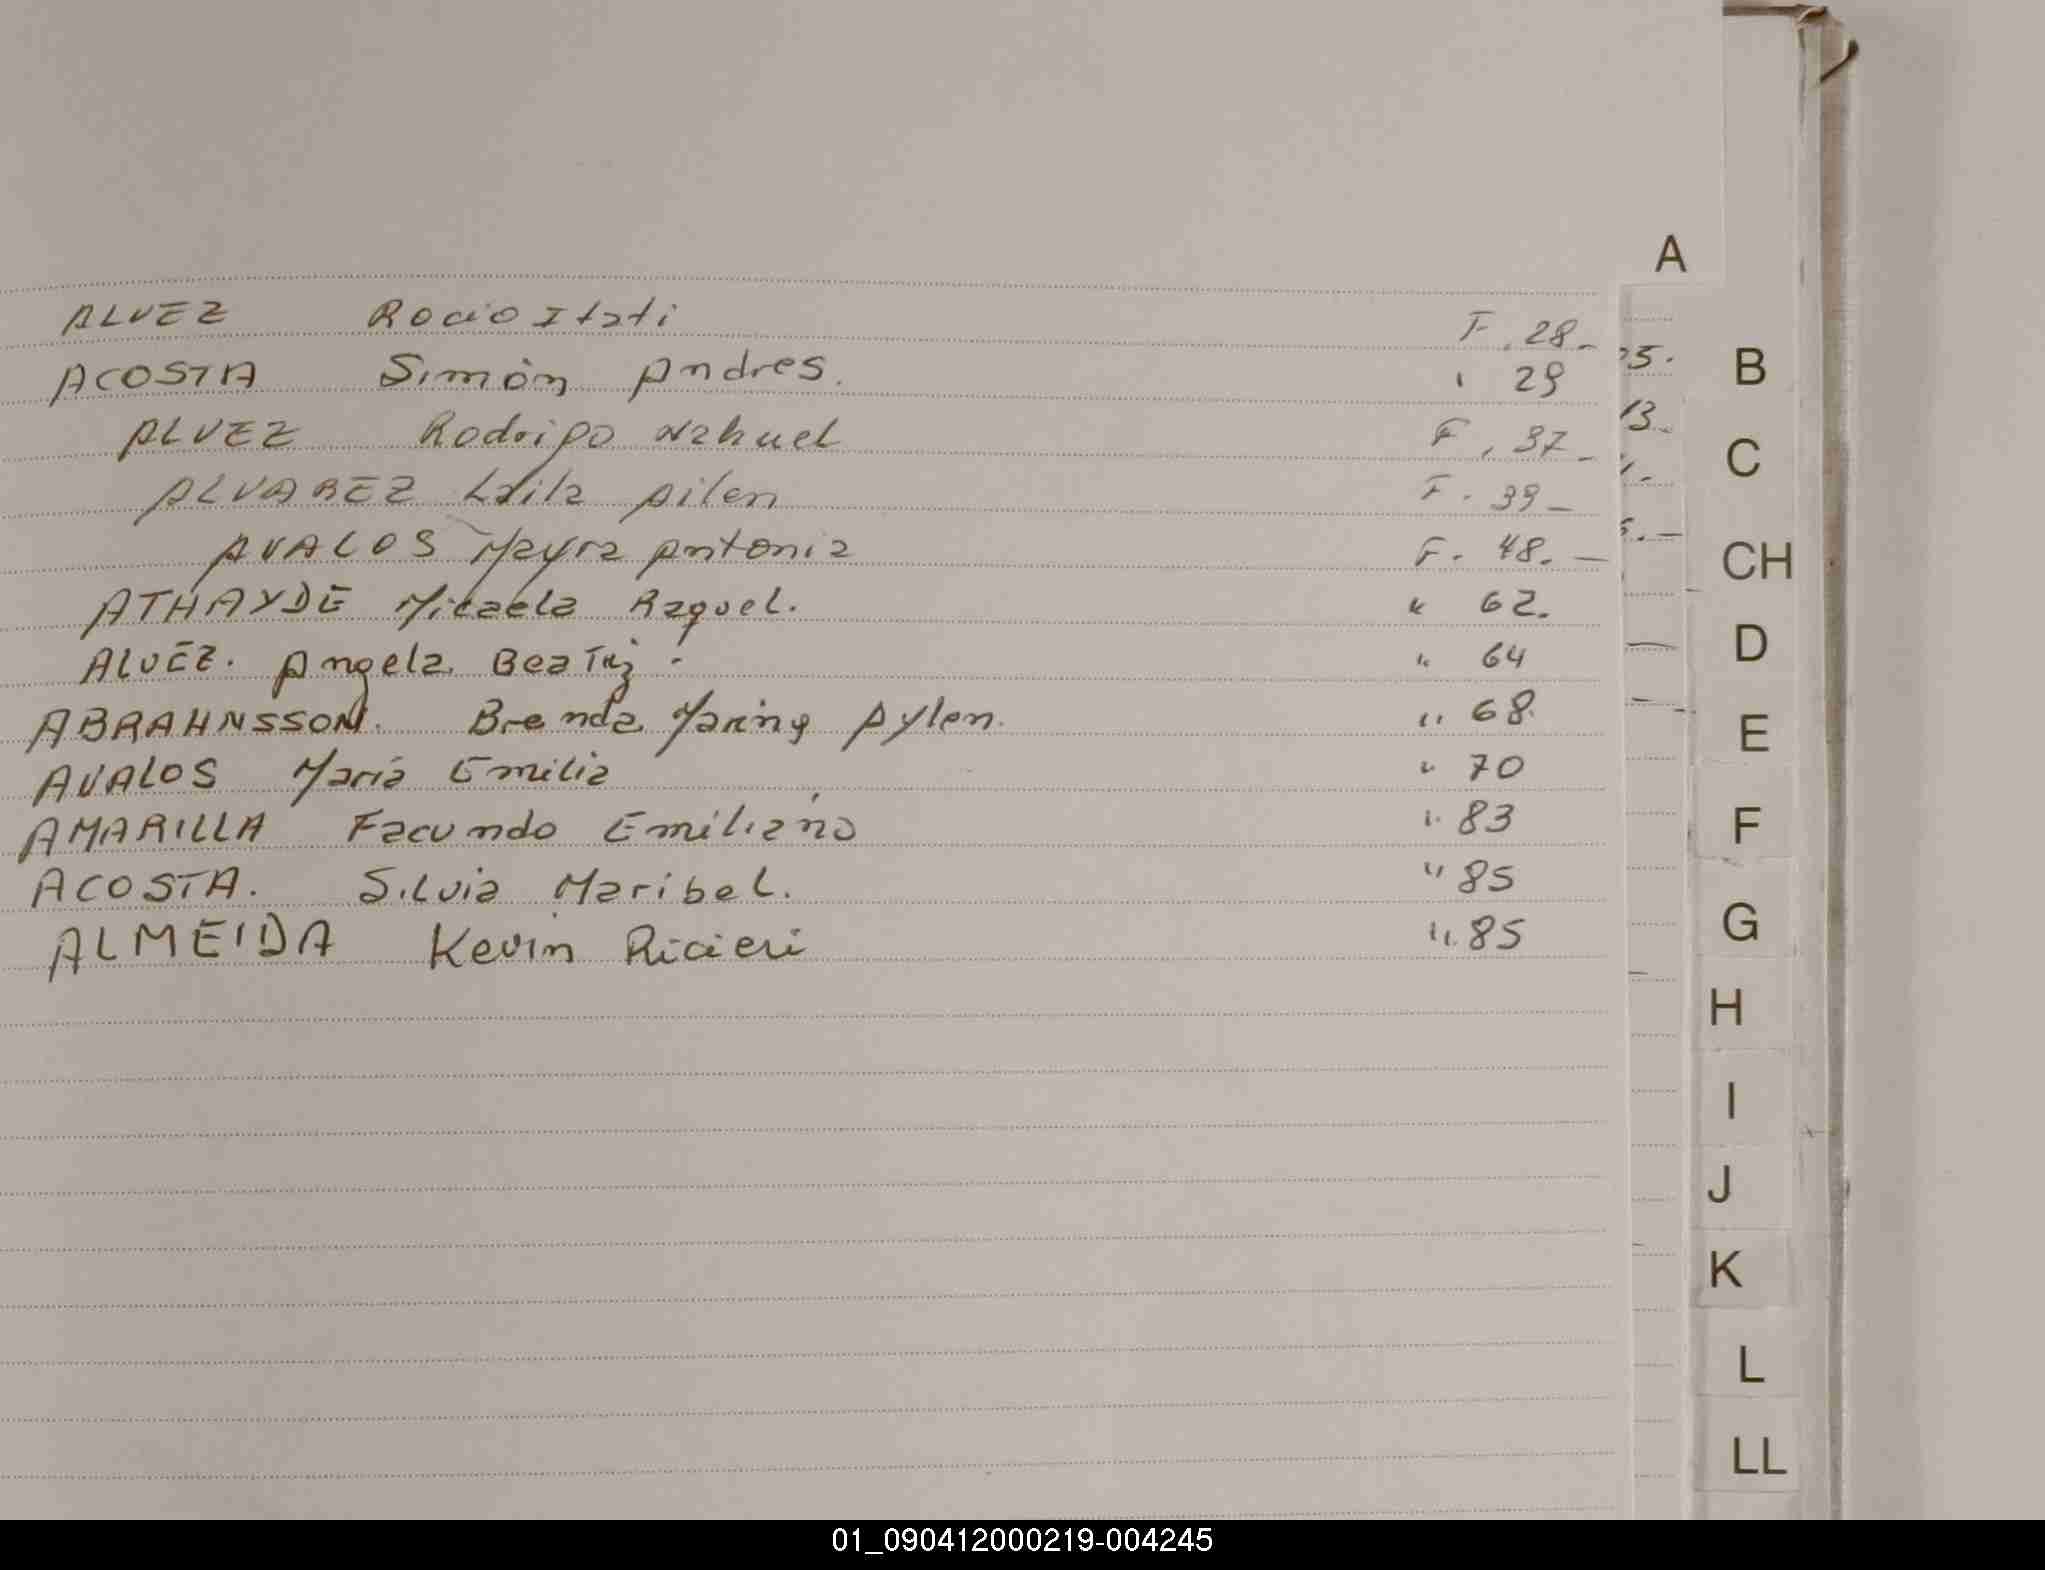 A
ALVEZ Rocio Itati F. 28.-
ACOSTA Simón Andres. " 29
ALVEZ Rodrigo Nahuel F. 37-
ALVAREZ Laila Ailen F. 39-
AVALOS Mayra Antonia F. 48.-
ATHAYDE Micaela Raquel. " 62.
ALVEZ. Angela Beatriz. " 64
ABRAHNSSON. Brenda Aylen. " 68.
AVALOS Maria Emilia " 70
AMARILLA Facundo Emiliano " 83
ACOSTA. Silvia Maribel. " 85
ALMEIDA Kevin Ricieri " 85
5.
13.
B
C
CH
D
E
F
G
H
I
J
K
L
LL
01_090412000219-004245